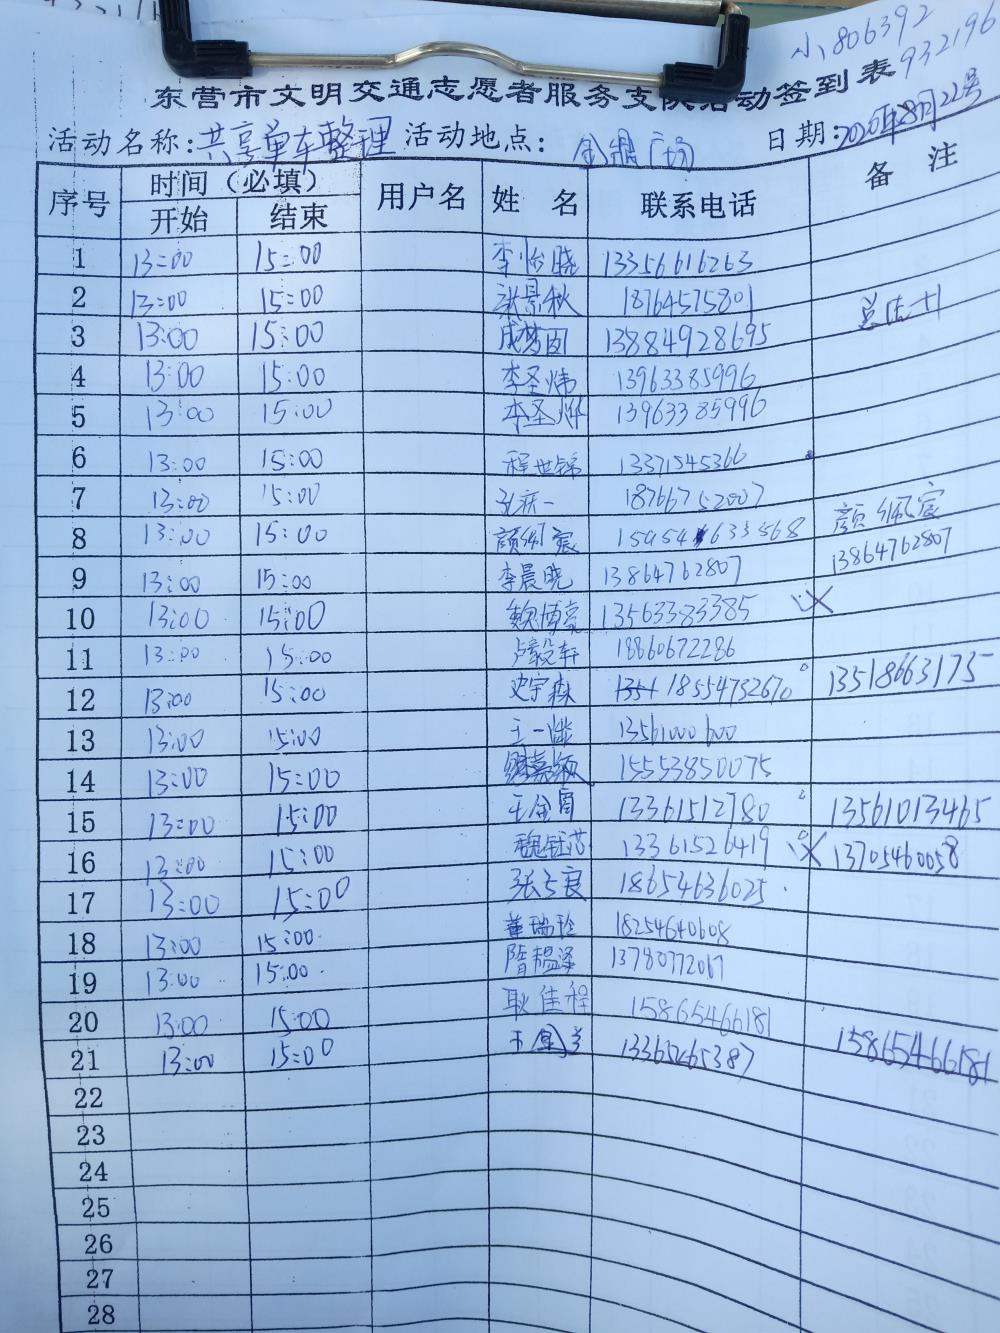 小806392
932196
东营市文明交通志愿者服务支队活动签到表
活动名称:共享单车整理 活动地点: 金鼎广场 日期:2020年8月22号
序号 时间（必填） 用户名 姓名 联系电话 备注
开始 结束
1 13:00 15:00 李怡晓 13356616263
2 13:00 15:00 张景秋 18764575801
3 13:00 15:00 成梦圆 13884928695
4 13:00 15:00 李圣炜 13963385996
5 13:00 15:00 李圣烨 13963385996
6 13:00 15:00 程世锦 13371545366
7 13:00 15:00 孔庆一 18766752007
8 13:00 15:00 颜佩宸 15954633568 颜佩宸
9 13:00 15:00 李晨晓 13864762807 13864762807
10 13:00 15:00 鲍博豪 13563383385
11 13:00 15:00 卢毅轩 18860672286
12 13:00 15:00 史宇森 1351 18554732670 13518663175
13 13:00 15:00 王一 13561000600
14 13:00 15:00 15553850075
15 13:00 15:00 王金 13361512780 13561013465
16 13:00 15:00 魏钰 13361526419 13705460058
17 13:00 15:00 张良 18654636025
18 13:00 15:00 瑞玲 18254640608
19 13:00 15:00 隋韫泽 13780772067
20 13:00 15:00 耿佳程 15865466181
21 13:00 15:00 王 13365465387 15865466181
22
23
24
25
26
27
28